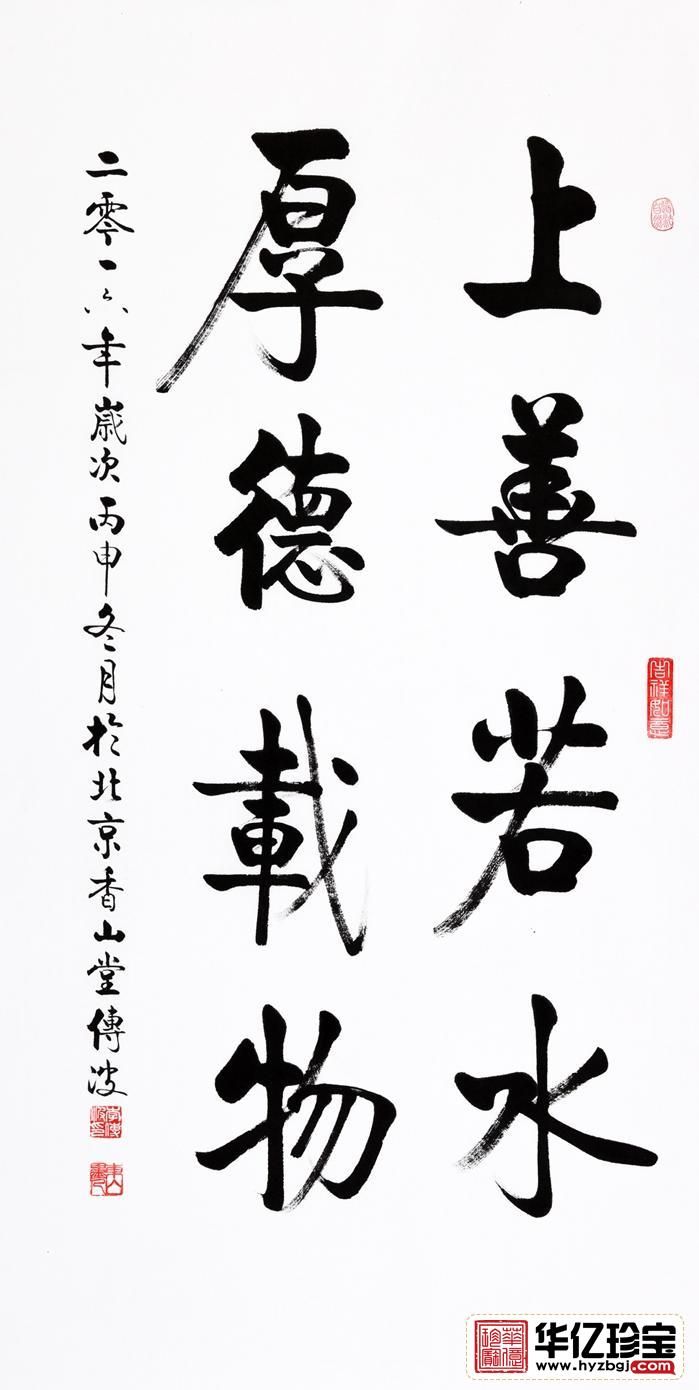 上善若水
厚德載物
二零一六年歲次丙申冬月於北京香山堂傳波
吉祥如意
华亿珍宝
www.hyzbgj.com